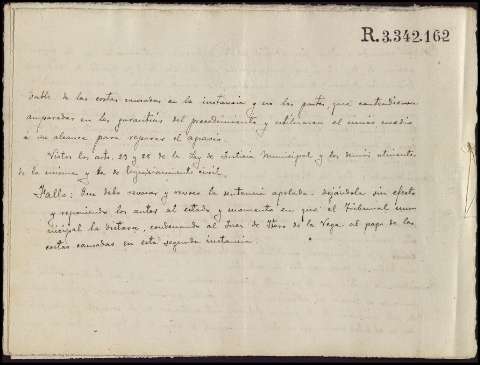 R. 3.342.162
sable de las costas causadas en la instancia y no las partes, que contendieron
amparadas en las garantías del procedimiento y utilizaron el único medio
á su alcance para reparar el agravio.
Vistos los arts. 23 y 25 de la Ley de Justicia Municipal y los demás atinentes
de la misma y la de Enjuiciamiento civil.
Fallo: Que debo revocar y revoco la sentencia apelada dejándola sin efecto
y reponiendo los autos al estado y momento en que el Tribunal mu-
nicipal la dictara, condenando al Juez de de la Vega al pago de las
costas causadas en esta segunda instancia.